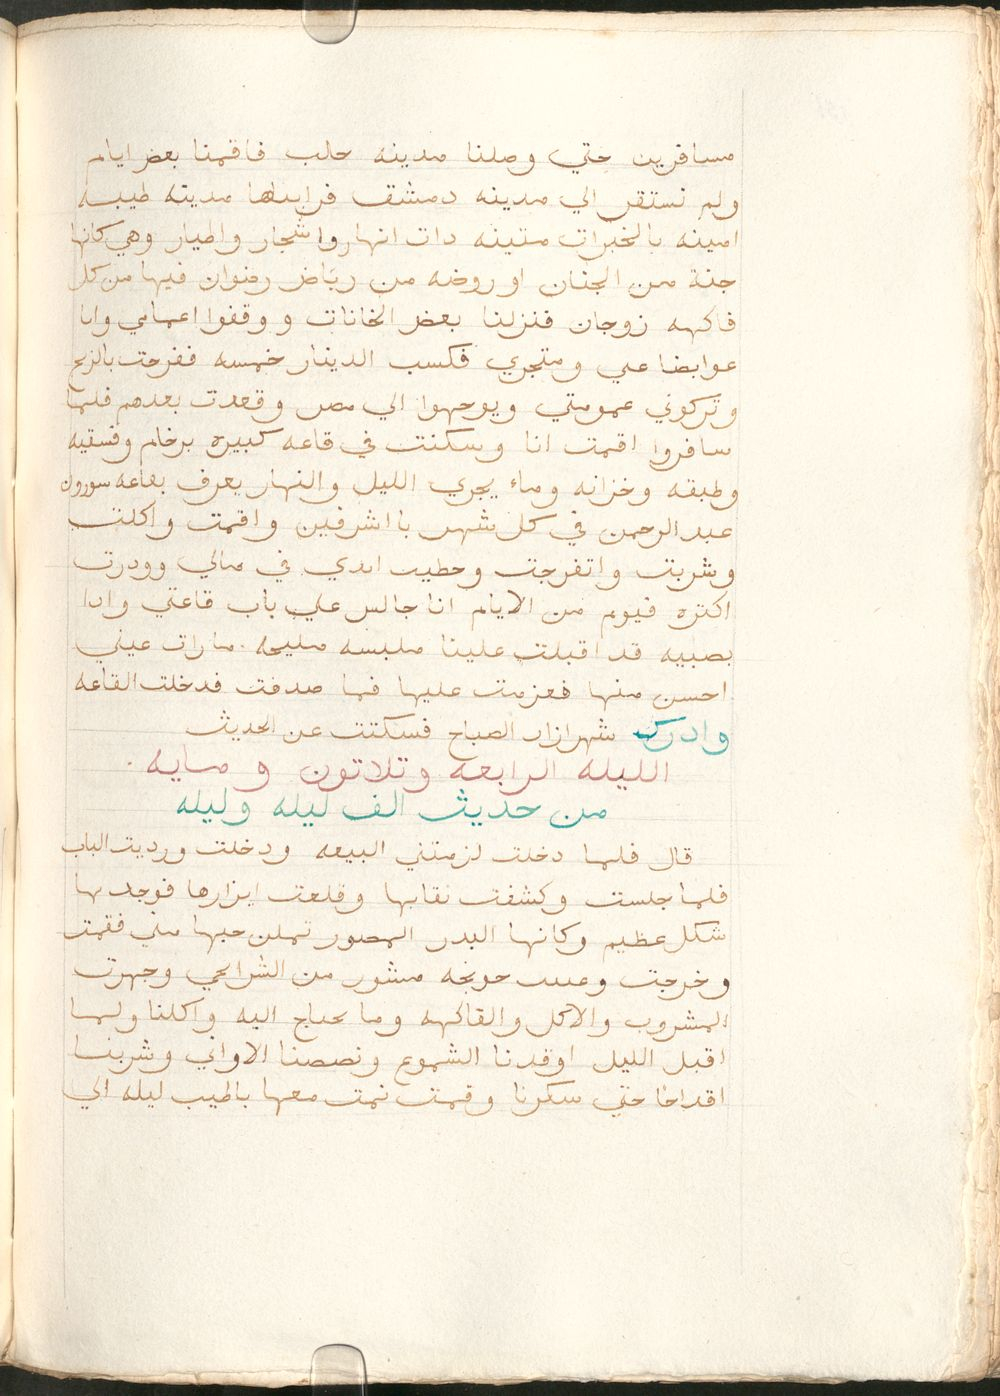 مسافرين حتي وصلنا مدينه حلب فاقمنا بعض ايام
ولم نستقر الي مدينه دمشق فرايناها مدينه طيبه
امينه بالخيرات متينه دات انهار واشجار واطيار وهي كانها
جنة من الجنان او روضه من رياض رضوان فيها من كل
فاكهه زوجان فنزلنا بعض الخانات ووقفوا اعمامي وابا
عوا بضاعي ومتجري فكسب الدينار خمسه ففرحت بالربح
وتركوني عمومتي ويوجهوا الي مصر وقعدت بعدهم فلما
سافروا اقمت انا وسكنت في قاعه كبيره برخام وفسقيه
وطبقه وخزانه وماء يجري الليل والنهار يعرف بقاعه سورون
عبد الرحمن في كل شهر با اشرفين واقمت واكلت
وشربت واتفرجت وحطيت ايدي في مالي وودرت
اكتره فيوم من الايام انا جالس علي باب قاعتي وادا
بصبيه قد اقبلت علينا ملبسه مليحه ما رات عيني
احسن منها فعزمت عليها فما صدقت فدخلت القاعه
وادرك شهرازاد الصباح فسكتت عن الحديث
الليله الرابعه وتلاتون ومايه
من حديث الف ليله وليله
قال فلما دخلت لزمتني البيعه ودخلت ورديت الباب
فلما جلست وكشفت نقابها وقلعت ايزارها فوجد بها
شكل عظيم وكانها البدر المصور تملن حبها مني فقمت
وخرجت وعبيت حونجه مشور من الشرايحي وجهرت
المشروب والاكل والفاكهه وما يحتاج اليه واكلنا ولما
اقبل الليل اوقدنا الشموع ونصصنا الاواني وشربنا
اقداحا حتي سكرنا وقمت نمت معها باطيب ليله الي